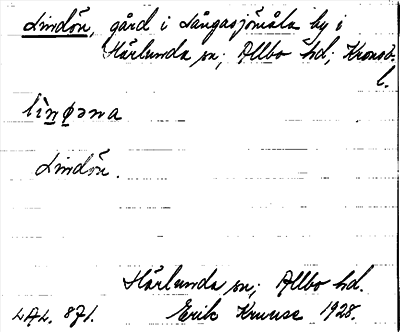 Lindön, gård i Långasjömåla by i
Härlunda sn; Allbo hd; Kronob.
l.
lìnꞩəna
Lindön.
Härlunda sn; Allbo hd.
LAL. 871. Erik Kruuse 1928.